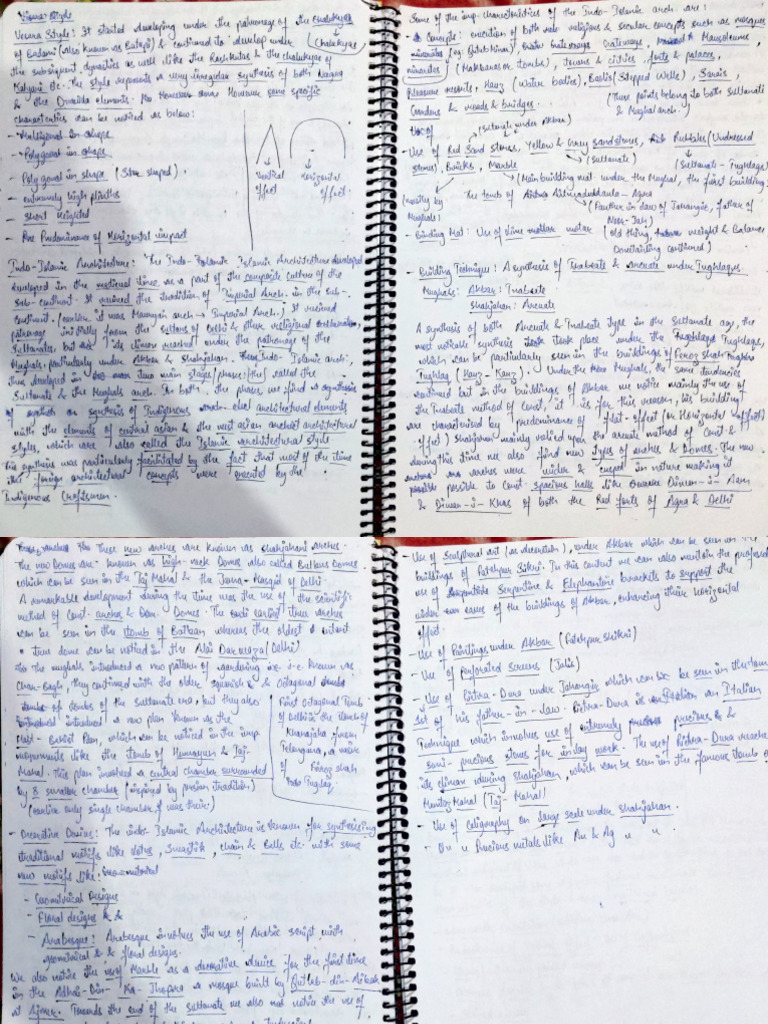 Vesara Style
Vesara Style: It started developing under the patronage of the Chalukyas
(Chalukyas)
of Badami (also known as Vatapi) & continued to develop under
the subsequent dynasties as well like the Rashkutas & the chalukyas of
Kalyani etc. The style represents a very irregular synthesis of both Nagara
& the Dravida elements. However some specific
characteristics can be noticed as below:
- Multigonal in shape
- Polygonal in shape
Polygonal in shape (Star shaped)
- extremely high plinths
- Short heighted
- Predominance of Horizontal impact
Vertical effect
Horizontal effect
Indo-Islamic Architecture: The Indo-Islamic Architecture developed
developed in the medieval times as a part of the composite culture of the
sub-continent. It revived the tradition of Imperial Arch. in the sub-
continent. (earlier it was Mauryan arch → Imperial Arch.) It received
patronage initially from the sultans of Delhi & other regional
Sultanates but its climax reached under the patronage of the
Mughals particularly under Akbar & Shahjahan. The Indo-Islamic arch.
thus developed in two main stage/phases; the called the
Sultanate & the Mughals arch. In both the phases, we find a synthesis
of synthesis of Indigenous architectural elements
with the elements of central asian & the west asian architectural
styles, which are also called the Islamic architectural style
This synthesis was particularly facilitated by the fact that most of the time
the foreign architectural concepts were executed by the
Indigenous Craftsmen.
Some of the imp. characteristics of the Indo-Islamic arch. are:
- Concepts: erection of both religious & secular concepts such as mosques
minarates (eg. Qutubminar), Gateways, Mausoleums,
(Makbaras or tombs), towns & cities, forts & palaces,
Pleasure resorts, Hauz (Water bodies), Baolis (Stepped Wells), Sarais,
Gardens & roads & bridges.
(These points belong to both Sultanate
& Mughal arch.)
(Sultanate under Akbar)
- Use of Red Sand stones, Yellow & Grey sandstones, Rubbles (Undressed
stones), Bricks, Marble
(Sultanate)
(Sultanate - Tughlaqs)
(Main building mat. under the Mughal, the first building:
(mostly by Mughals)
The tomb of Itimaduddaula - Agra
(Father in law of Jahangir, father of
Noor-Jah)
- Binding Mat: Use of lime mortar
- Building Technique: A synthesis of Trabeate & arcuate under Tughlaqs.
Mughals: Akbar: Trabeate
Shahjahan: Arcuate
A synthesis of both Arcuate & Trabeate type in the Sultanate age, the
most noticable synthesis took place under the Tughlaqs,
which can be particularly seen in the buildings of Feroz shah
Tughlaq (Hauz - Kauz). Under the Mughals, the same tendencies
continued but in the buildings of Akbar we notice mainly the use of
the Trabeate method of const, it is for this reason, his building
are characterised by predominance of flat-effect (or Horizontal effect)
effect) Shahjahan mainly relied upon the arcuate method of Const. &
during this time we also find new types of arches & Domes. The new
arches were wider & cusped in nature making it
possible to const. spacious halls like Diwan-i-Aam
& Diwan-i-Khas of both the Red forts of Agra & Delhi
These new arches are known as Shahjahani arches.
The new Domes are known as high-neck Domes also called Bulbous Domes
which can be seen in the Taj Mahal & the Jama-Masjid of Delhi
A remarkable development during the time was the use of the scientific
method of Const. arches & Domes. The earliest true arches
can be seen in the tomb of Balban whereas the oldest extant
true dome can be noticed in the Alai Darwaza (Delhi)
The mughals introduced a new pattern of gardening i.e. known as
Char-Bagh, they continued with the older square & octagonal
tombs of the Sultanate era, but they also
introduced a new plan known as the
Hast-Behist Plan, which can be noticed in the imp.
monuments like the tomb of Humayun & Taj-
Mahal. This plan involved a central chamber surrounded
by 8 smaller chambers (inspired by persian tradition)
(earlier only single chamber was there)
First Octagonal Tomb
of Delhi is the tomb of
Khanajaha from
Telangana, a
of Firoz shah
Tuglaq.
- Decorative Devices: The Indo-Islamic Architecture is known for synthesizing
traditional motifs like lotus, Swastik, chain & Bells etc. with some
new motifs like:
- Geometrical Designs
- Floral designs &
- Arabesque: Arabesque involves the use of Arabic script with
geometrical & floral designs.
We also notice the use of Marble as a decorative device for the first time
in the Adhai-Din-Ka-Jhopra a mosque built by Qutub-din-Aibak
at Ajmer. Towards the end of the Sultanate we also notice the use of
- Use of Sculptural art (as decoration), under Akbar which can be seen in the
buildings of Fatehpur Sikri. In this context we can also mention the profuse
use of Serpentine & Elephantine brackets to support the
wider eaves of the buildings of Akbar, enhancing their horizontal
effect.
- Use of Paintings under Akbar (Fatehpur shikri)
- Use of Perforated Screens (Jalis)
- Use of Pietra-Dura under Jahangir which can be seen in the tomb
of his father-in-law. Pietra-Dura is an Italian
Technique which involves use of extremely precious &
semi-precious stones for inlay work. The use of Pietra-Dura reached
its climax during Shahjahan, which can be seen in the famous tomb of
Mumtaz Mahal (Taj-Mahal)
- Use of Caligraphy on large scale under Shahjahan.
- " " Precious metals like Au & Ag " "